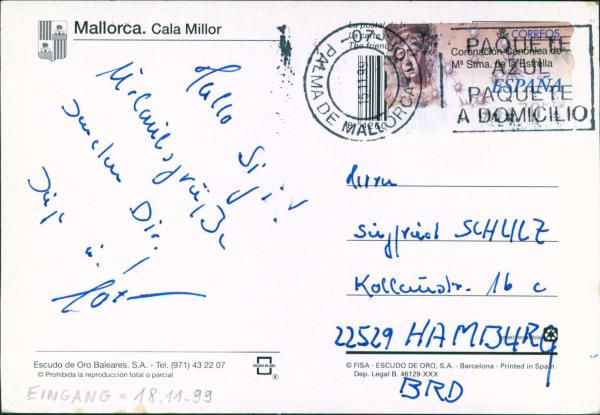 Mallorca. Cala Millor
Hallo Sigi!
Urlaubsgrüße
senden Dir
CORREOS
Coronación Canónica de
Mª Stma. de la Estrella
ESPAÑA
PALMA DE MALLORCA
PAQUETE
AZUL
PAQUETE
A DOMICILIO
Herrn
Siegfried SCHULZ
Kollaustr. 16 c
22529 HAMBURG
BRD
Escudo de Oro Baleares. S.A. - Tel. (971) 43 22 07
© Prohibida la reproducción total o parcial
© FISA - ESCUDO DE ORO, S.A. - Barcelona - Printed in Spain
Dep. Legal B. 46129-XXX
EINGANG = 18.11.99